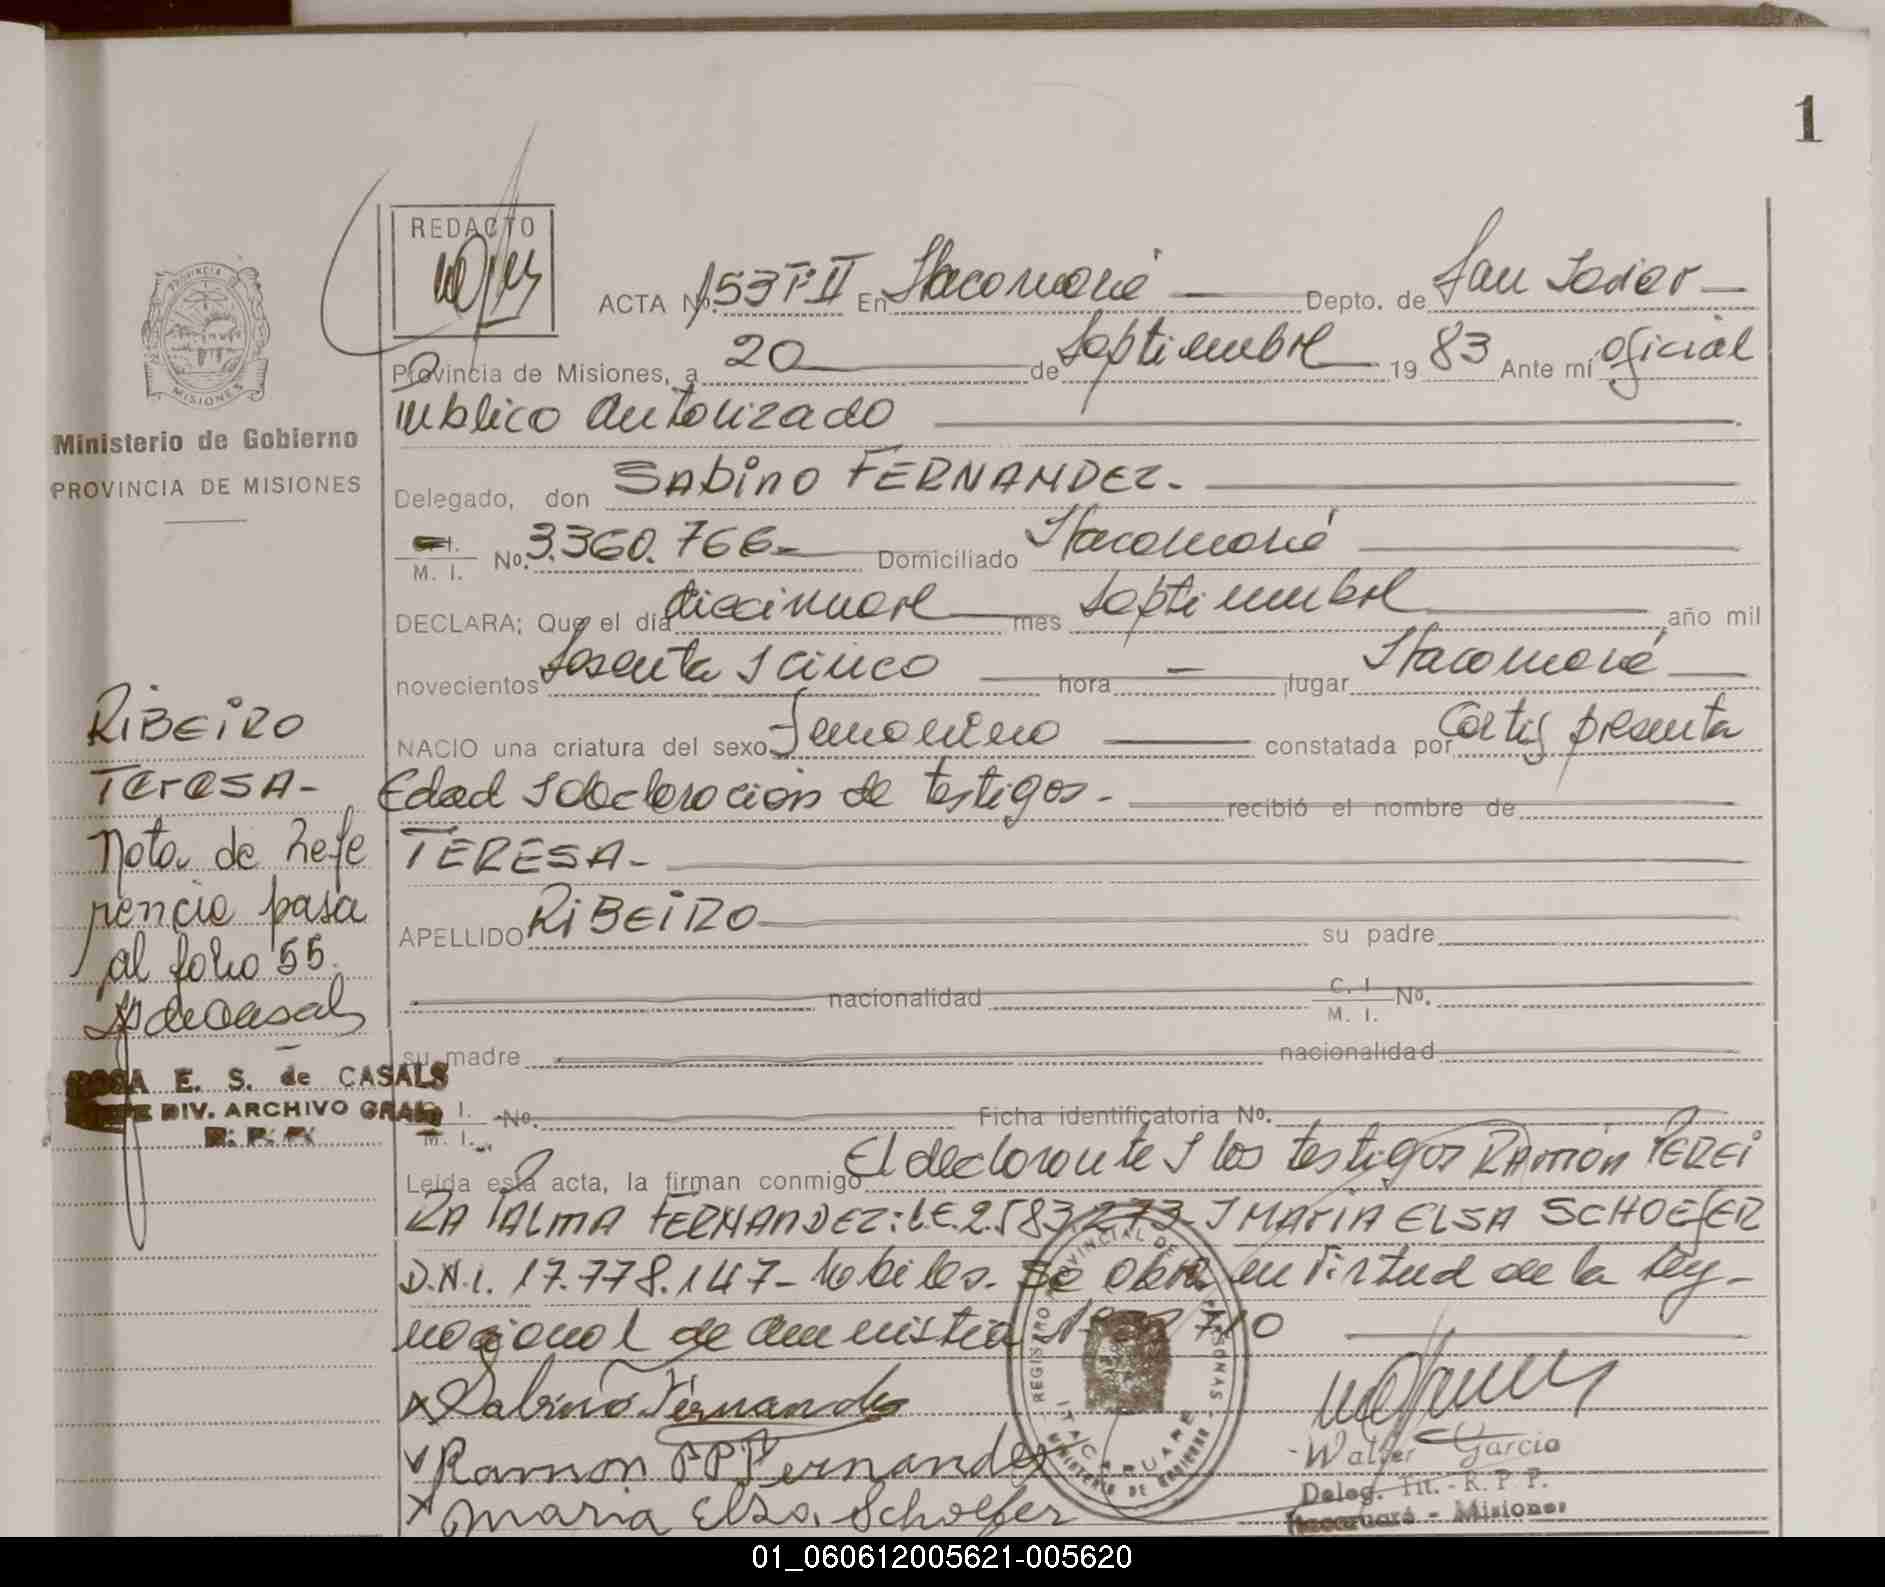 1
REDACTO
PROVINCIA DE MISIONES
Ministerio de Gobierno
PROVINCIA DE MISIONES
ACTA No. 153 T: II En Itacaruaré Depto. de San Javier
Provincia de Misiones, a 20 de Septiembre 1983 Ante mí oficial
Publico Autorizado
Delegado, don SAbinO FERNANDEZ.
M. I. No. 3.360.766 Domiciliado Itacaruaré
DECLARA; Que el día diecinueve mes septiembre año mil
novecientos sesenta y cinco hora - lugar Itacaruaré
NACIO una criatura del sexo Femenino constatada por Cortif presenta
Edad y declaración de testigos. recibió el nombre de
TERESA-
APELLIDO RiBEiRO su padre
nacionalidad C. I. M. I. No.
su madre nacionalidad
I. M. I. No. Ficha identificatoria No.
Leída esta acta, la firman conmigo El declarante y los testigos RAmón PEREi
RA PALMA FERNANDEZ: L.E. 2.583.273. y MARiA ELSA SCHOEfER
D.N.I. 17.778.147- habiles. Se obra en virtud de la Ley-
nacional de amnistia 710
x Sabino Fernandes
Ramon P P Fernandez
x Maria Elsa Schoefer
RiBEiRO
TerESA-
Nota de Refe
rencia pasa
al folio 55.
ROSA E. S. de CASALS
JEFE DIV. ARCHIVO GRAL
REGISTRO PROVINCIAL DE PERSONAS
ITACARUARE
MINISTERIO DE GOBIERNO
Walter Garcia
Deleg. Tit. - R. P. P.
Itacaruaré - Misiones
01_060612005621-005620